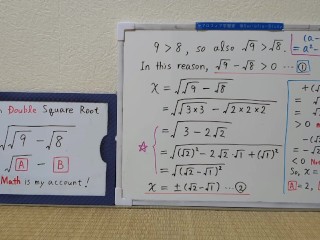 Double Square Root
√√9 - √8
√A - B
Math is my account!
9 > 8, so also √9 > √8.
In this reason, √9 - √8 > 0 … ①
x = √√9 - √8
= √√3×3 - √2×2×2
= √3 - 2√2
☆
= √(√2)² - 2√2·√1 + (√1)²
= √(√2 - √1)²
x = ± (√2 - √1) … ②
(a -
= a² -
+(√
= √
> 0
-(√
= -√
< 0
So, x =
A = 2,